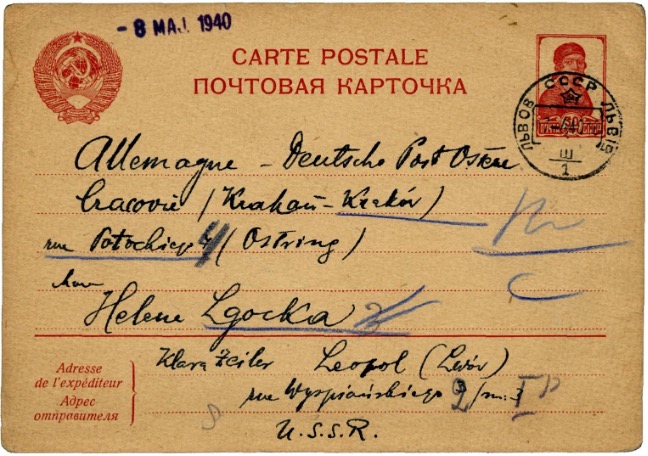 - 8 MAJ. 1940
CARTE POSTALE
ПОЧТОВАЯ КАРТОЧКА
СССР
ЛЬВОВ ЛЬВІВ
Ш
1
Allemagne - Deutsche Post Osten
Cracovie (Krakau - Kraków)
rue Potockiego 4 (Ostring)
Helene Lgocka
Adresse
de l'expéditeur
Адрес
отправителя
Klara Zeiler Leopol (Lwów)
rue Wyspiańskiego
U.S.S.R.